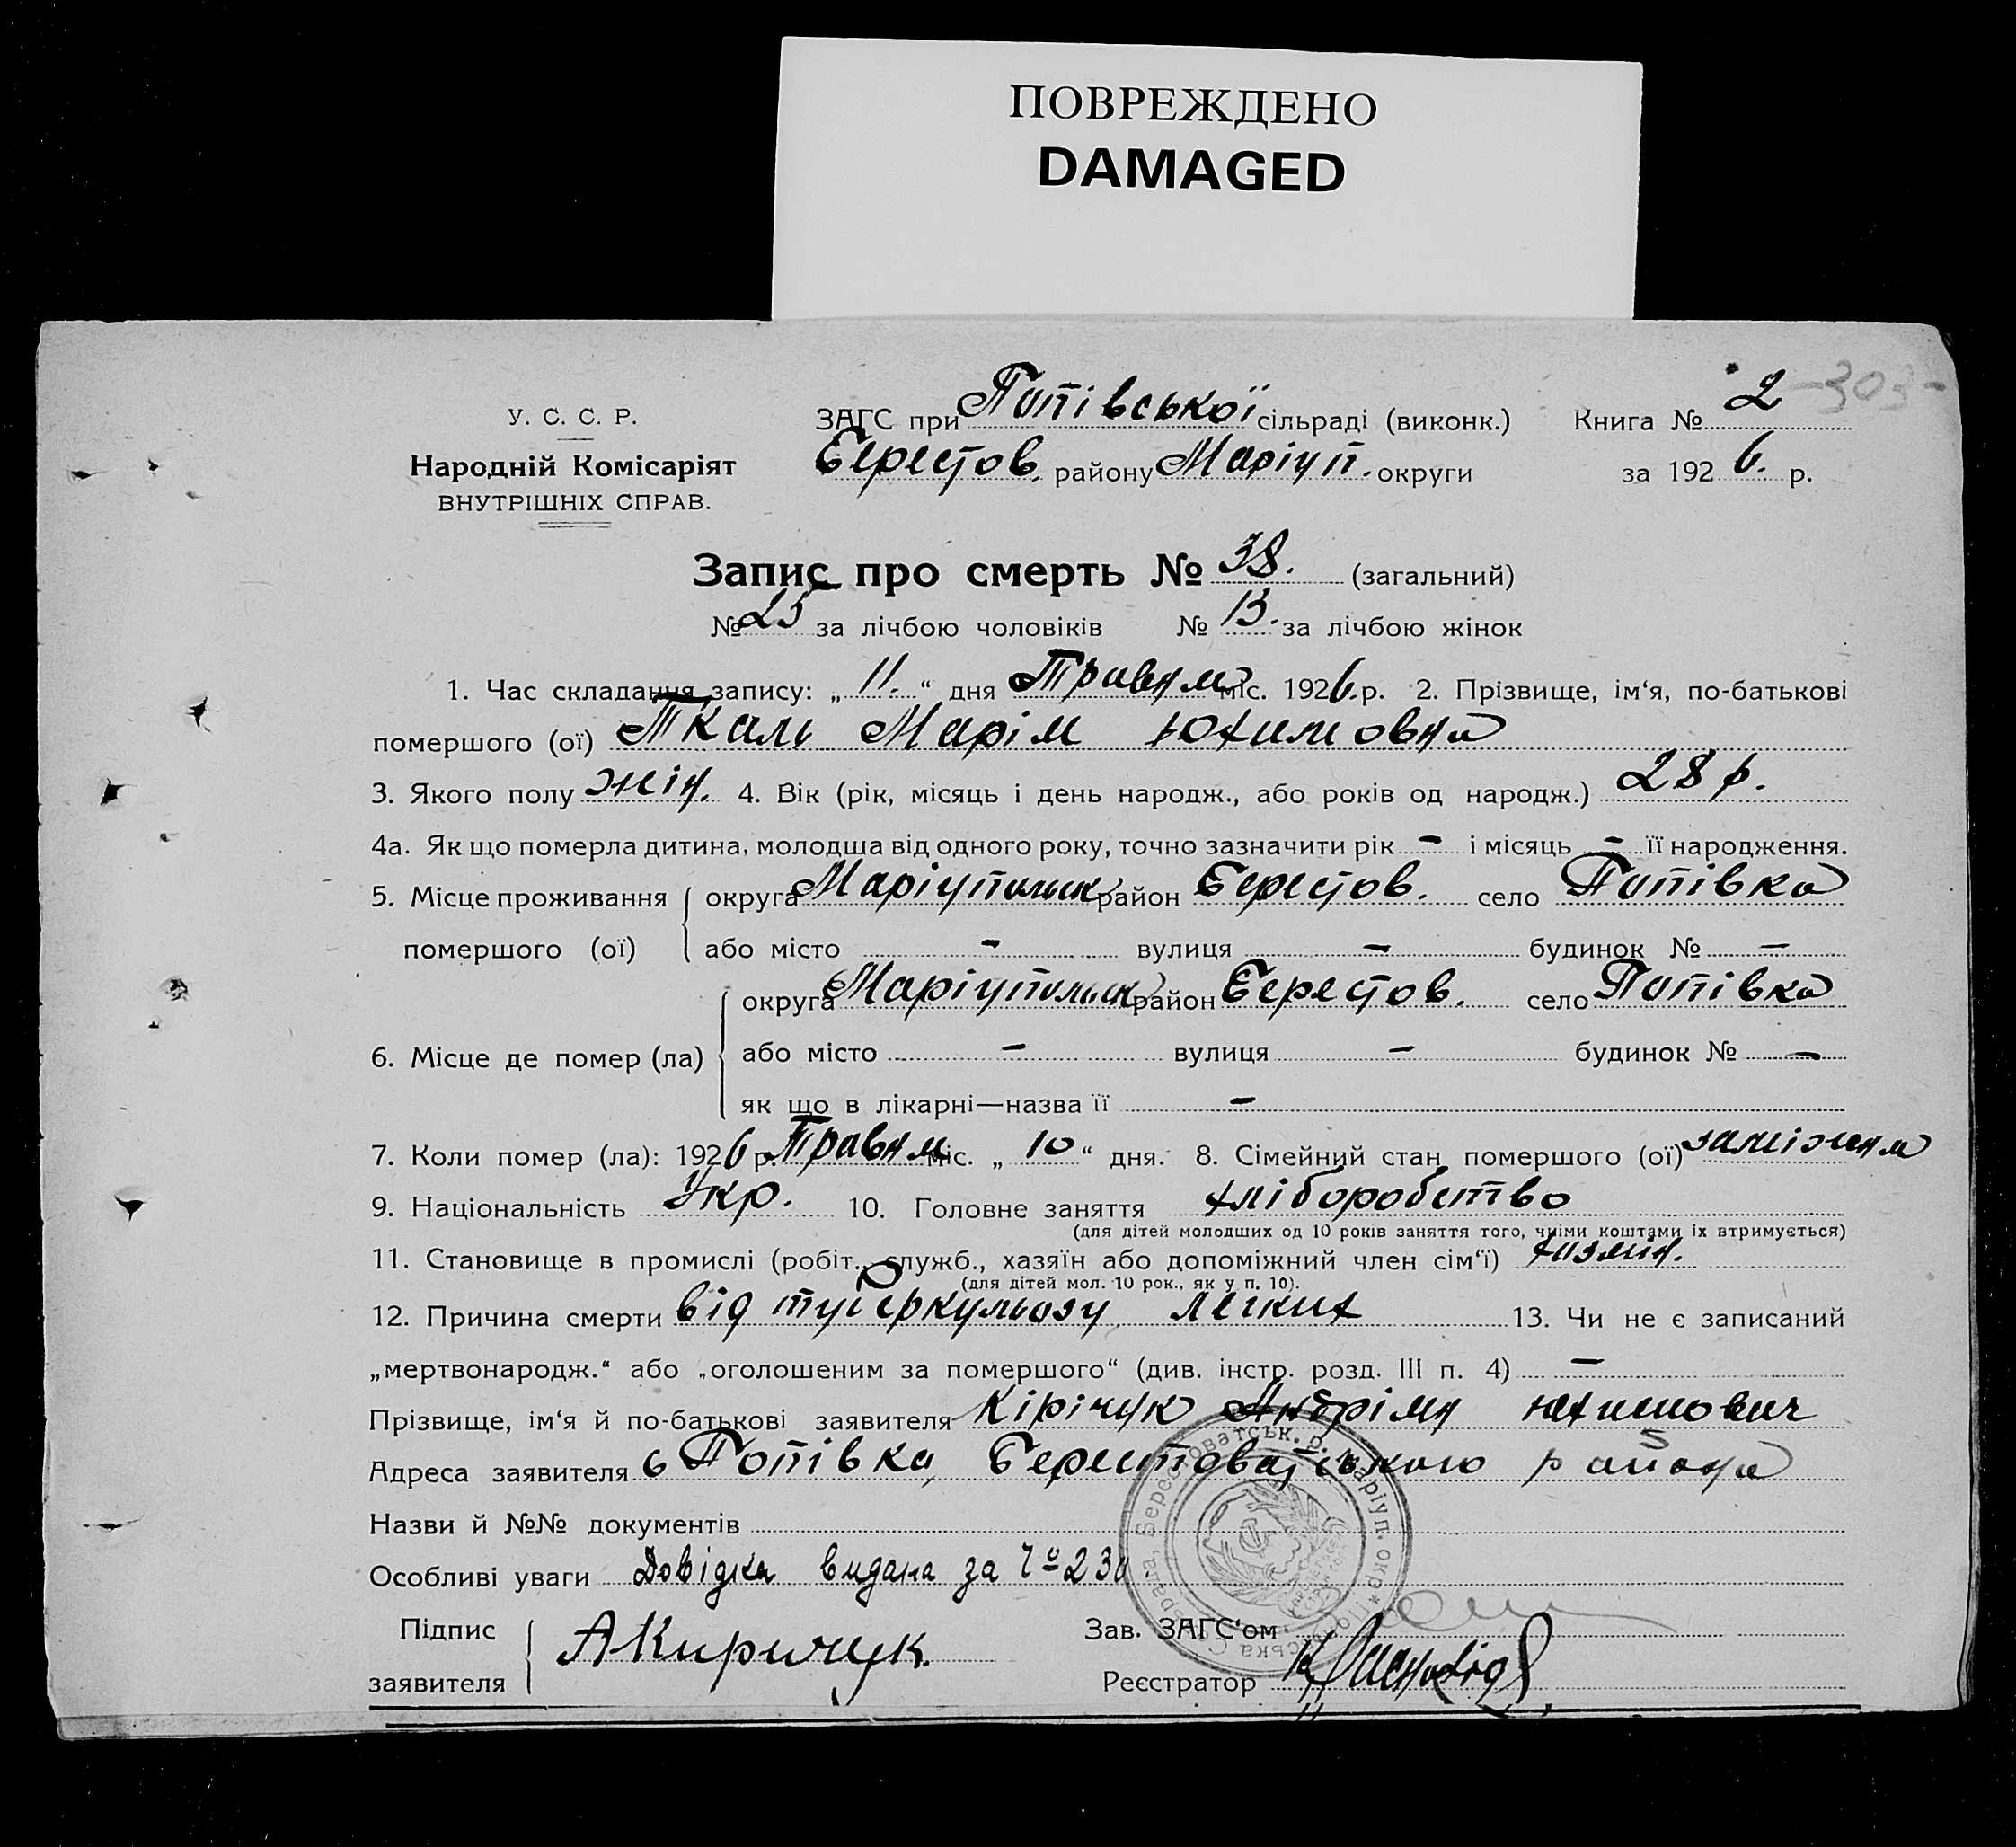 ПОВРЕЖДЕНО
DAMAGED
2 -303-
У. С. С. Р. ЗАГС при Попівської сільраді (виконк.) Книга №
Народній Комісаріят Берестов. району Маріуп. округи за 192 6. р.
ВНУТРІШНІХ СПРАВ.
Запис про смерть № 38. (загальний)
№ 25 за лічбою чоловіків № 13. за лічбою жінок
1. Час складання запису: „ 11. “ дня Травня міс. 1926. р. 2. Прізвище, ім‘я, по-батькові
помершого (ої) Ткаль Марія Юхимовна
3. Якого полу жін. 4. Вік (рік, місяць і день народж., або років од народж.) 28 р.
4а. Як що померла дитина, молодша від одного року, точно зазначити рік – і місяць – її народження.
5. Місце проживання округа Маріупольск район Берестов. село Попівка
помершого (ої) або місто – вулиця – будинок № –
округа Маріупольск район Берестов. село Попівка
6. Місце де помер (ла) або місто – вулиця – будинок № –
як що в лікарні—назва її –
7. Коли помер (ла): 1926 р. Травня міс. „ 10 “ дня. 8. Сімейний стан помершого (ої) заміжня
9. Національність Укр. 10. Головне заняття хліборобство
(для дітей молодших од 10 років заняття того, чиїми коштами їх втримується)
11. Становище в промислі (робіт., служб., хазяїн або допоміжний член сім‘ї) хазяїн.
(для дітей мол. 10 рок., як у п. 10).
12. Причина смерти від туберкульозу легких 13. Чи не є записаний
„мертвонародж.“ або „оголошеним за помершого“ (див. інстр. розд. III п. 4) –
Прізвище, ім‘я й по-батькові заявителя Кірічук Андріян Юхимович
Адреса заявителя с Попівка, Берестоватського района
Назви й №№ документів
Особливі уваги Довідка видана за № 230
Підпис заявителя АКиричук. Зав. ЗАГС‘ом
Реєстратор